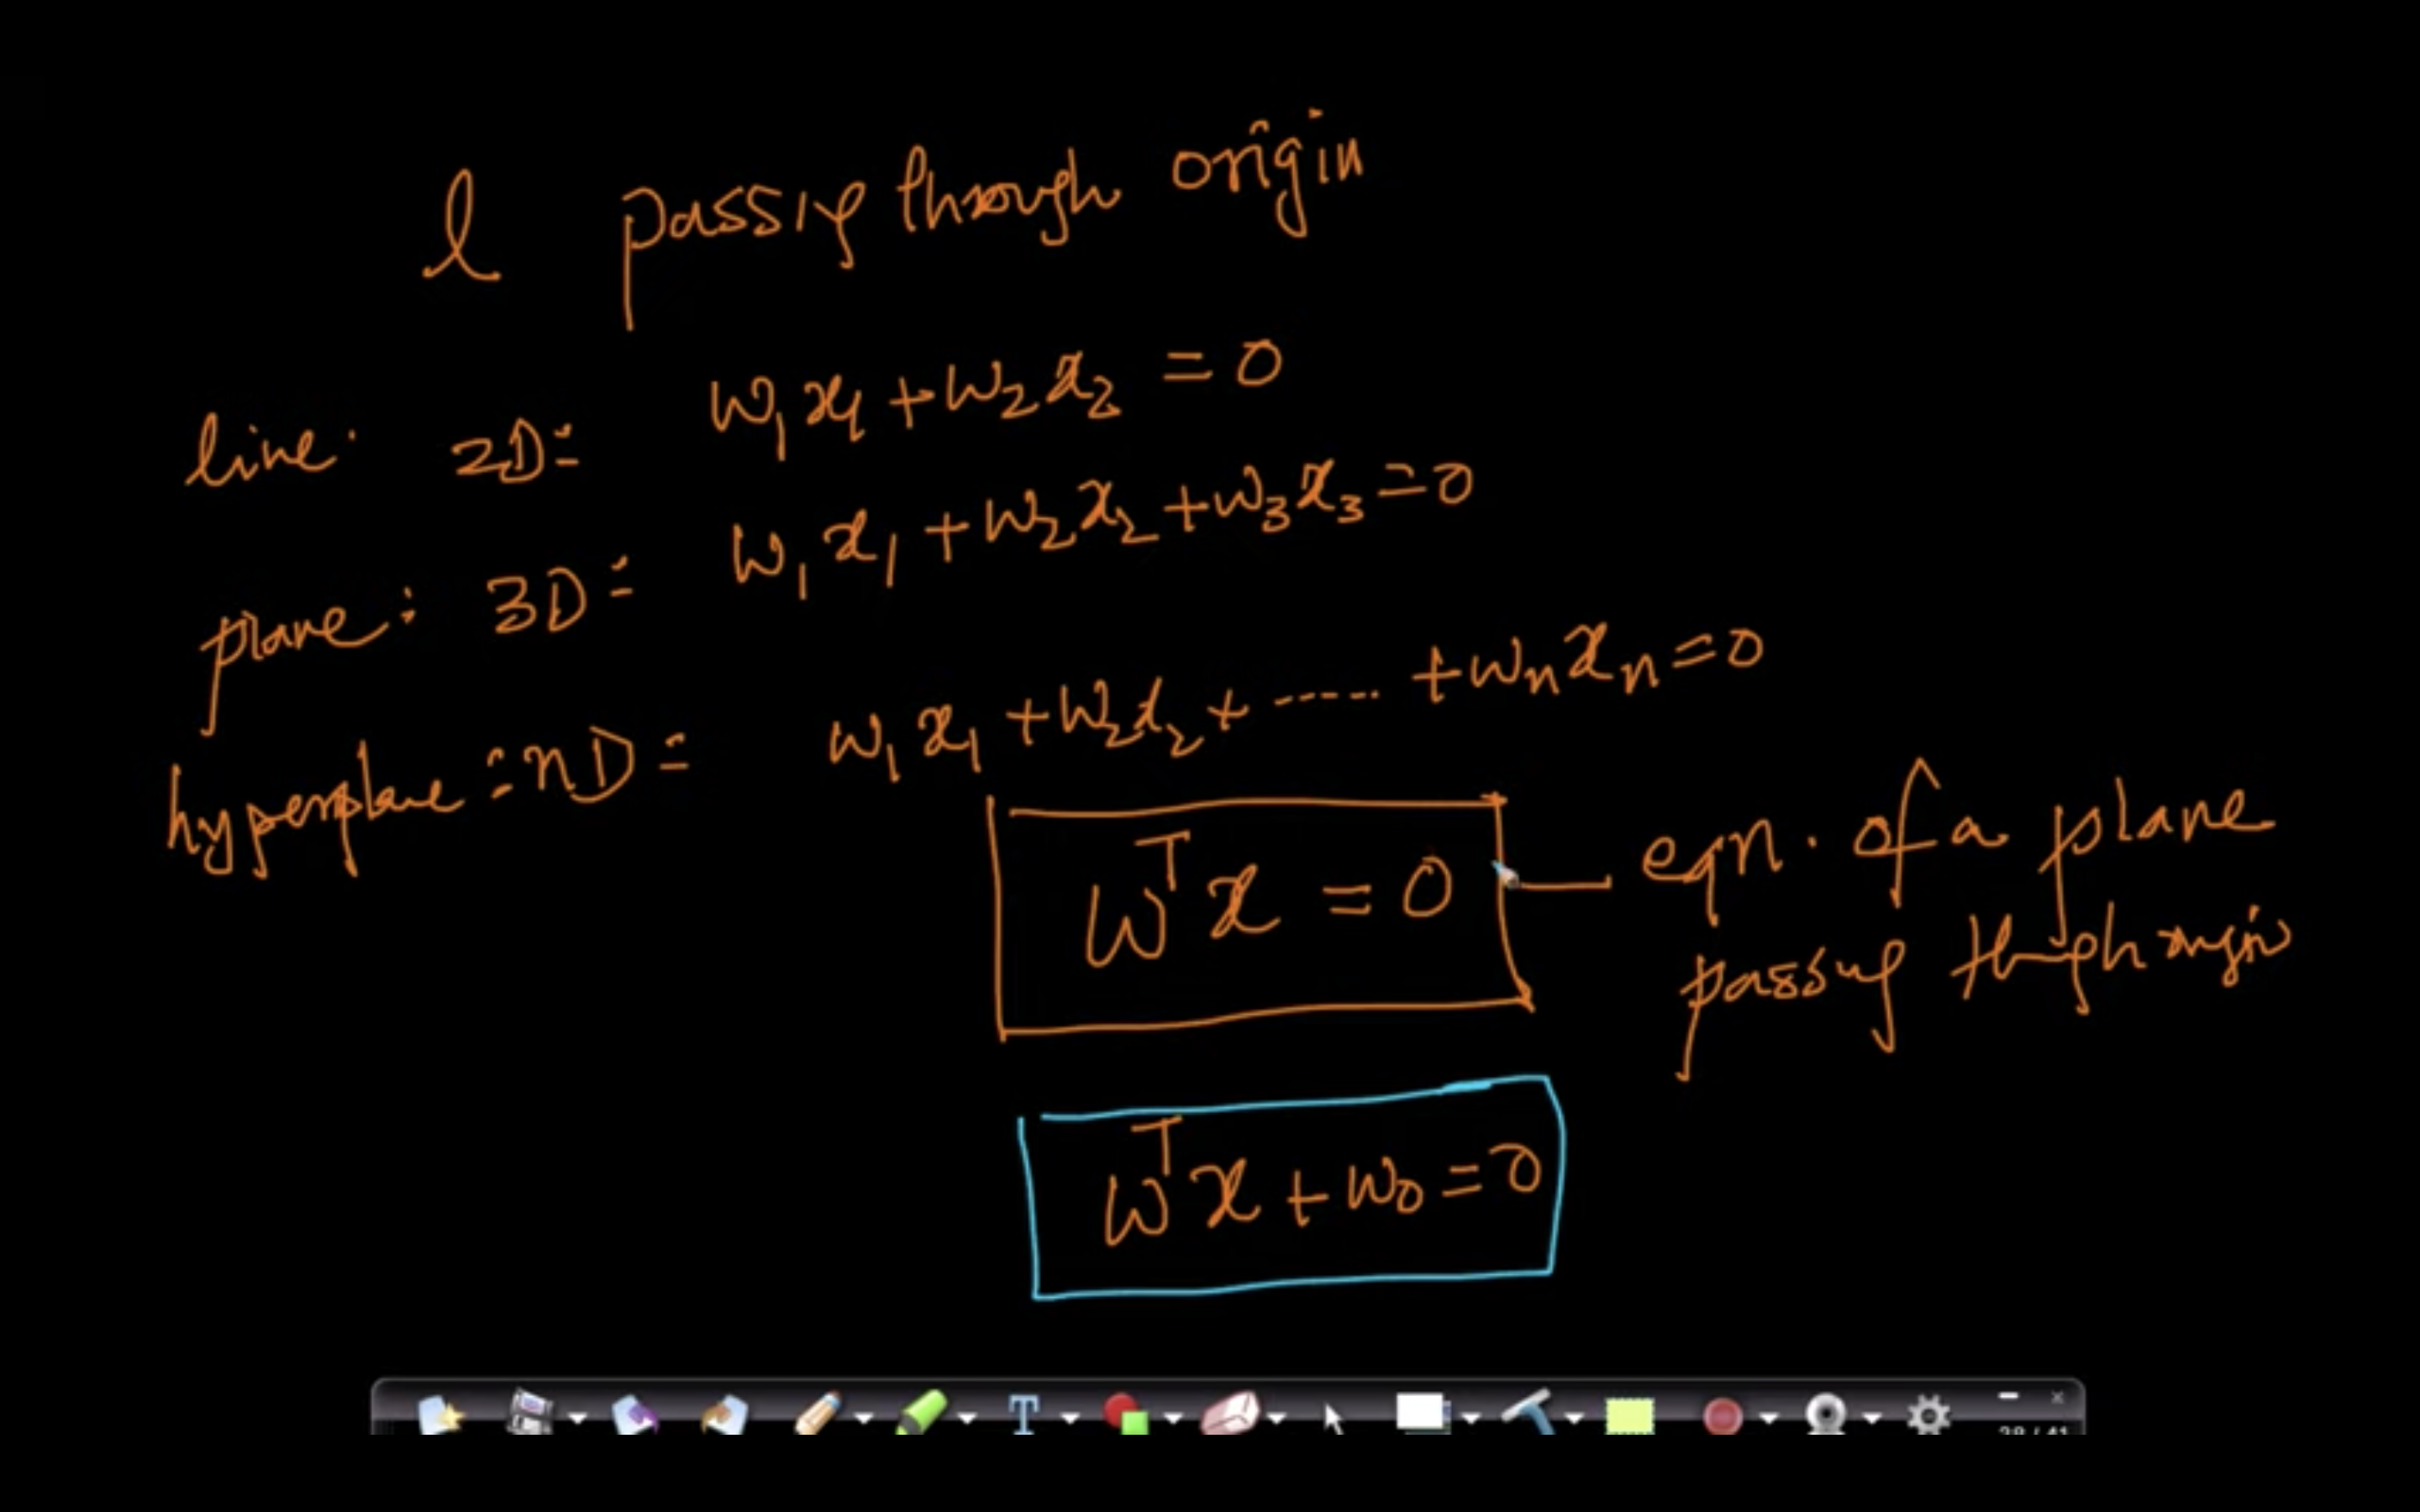 l passing through origin
line: 2D: w₁x₁ + w₂x₂ = 0
plane: 3D: w₁x₁ + w₂x₂ + w₃x₃ = 0
hyperplane: nD: w₁x₁ + w₂x₂ + ----- + wₙxₙ = 0
wᵀx = 0 — eqn. of a plane
passing through origin
wᵀx + w₀ = 0